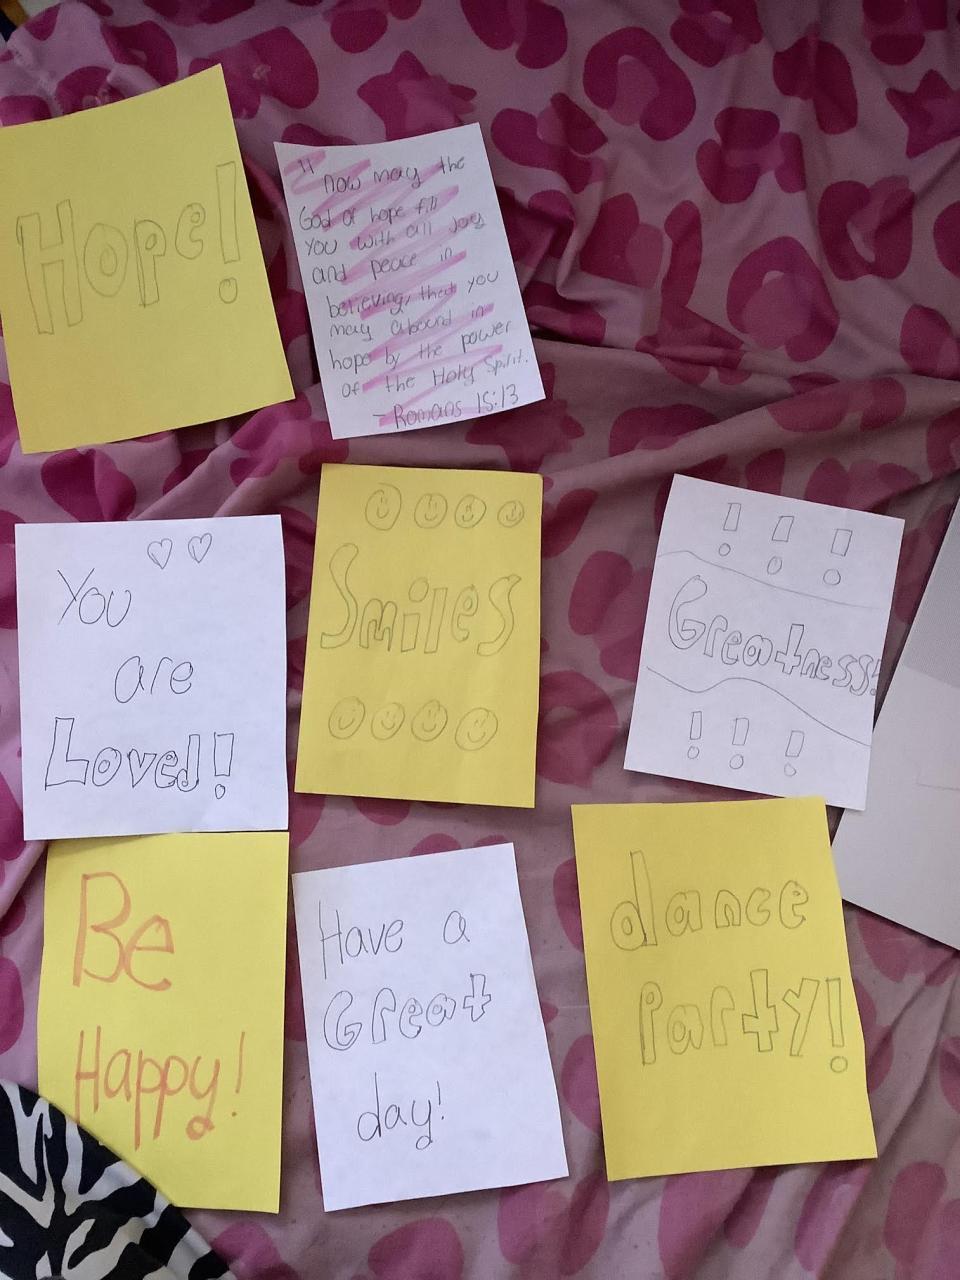 Hope!
" now may the
God of hope fill
you with all Joy
and peace in
believing, that you
may abound in
hope by the power
of the Holy Spirit.
- Romans 15:13
You
are
Loved!
Smiles
! ! !
Greatness!
! ! !
Be
Happy!
Have a
Great
day!
dance
Party!